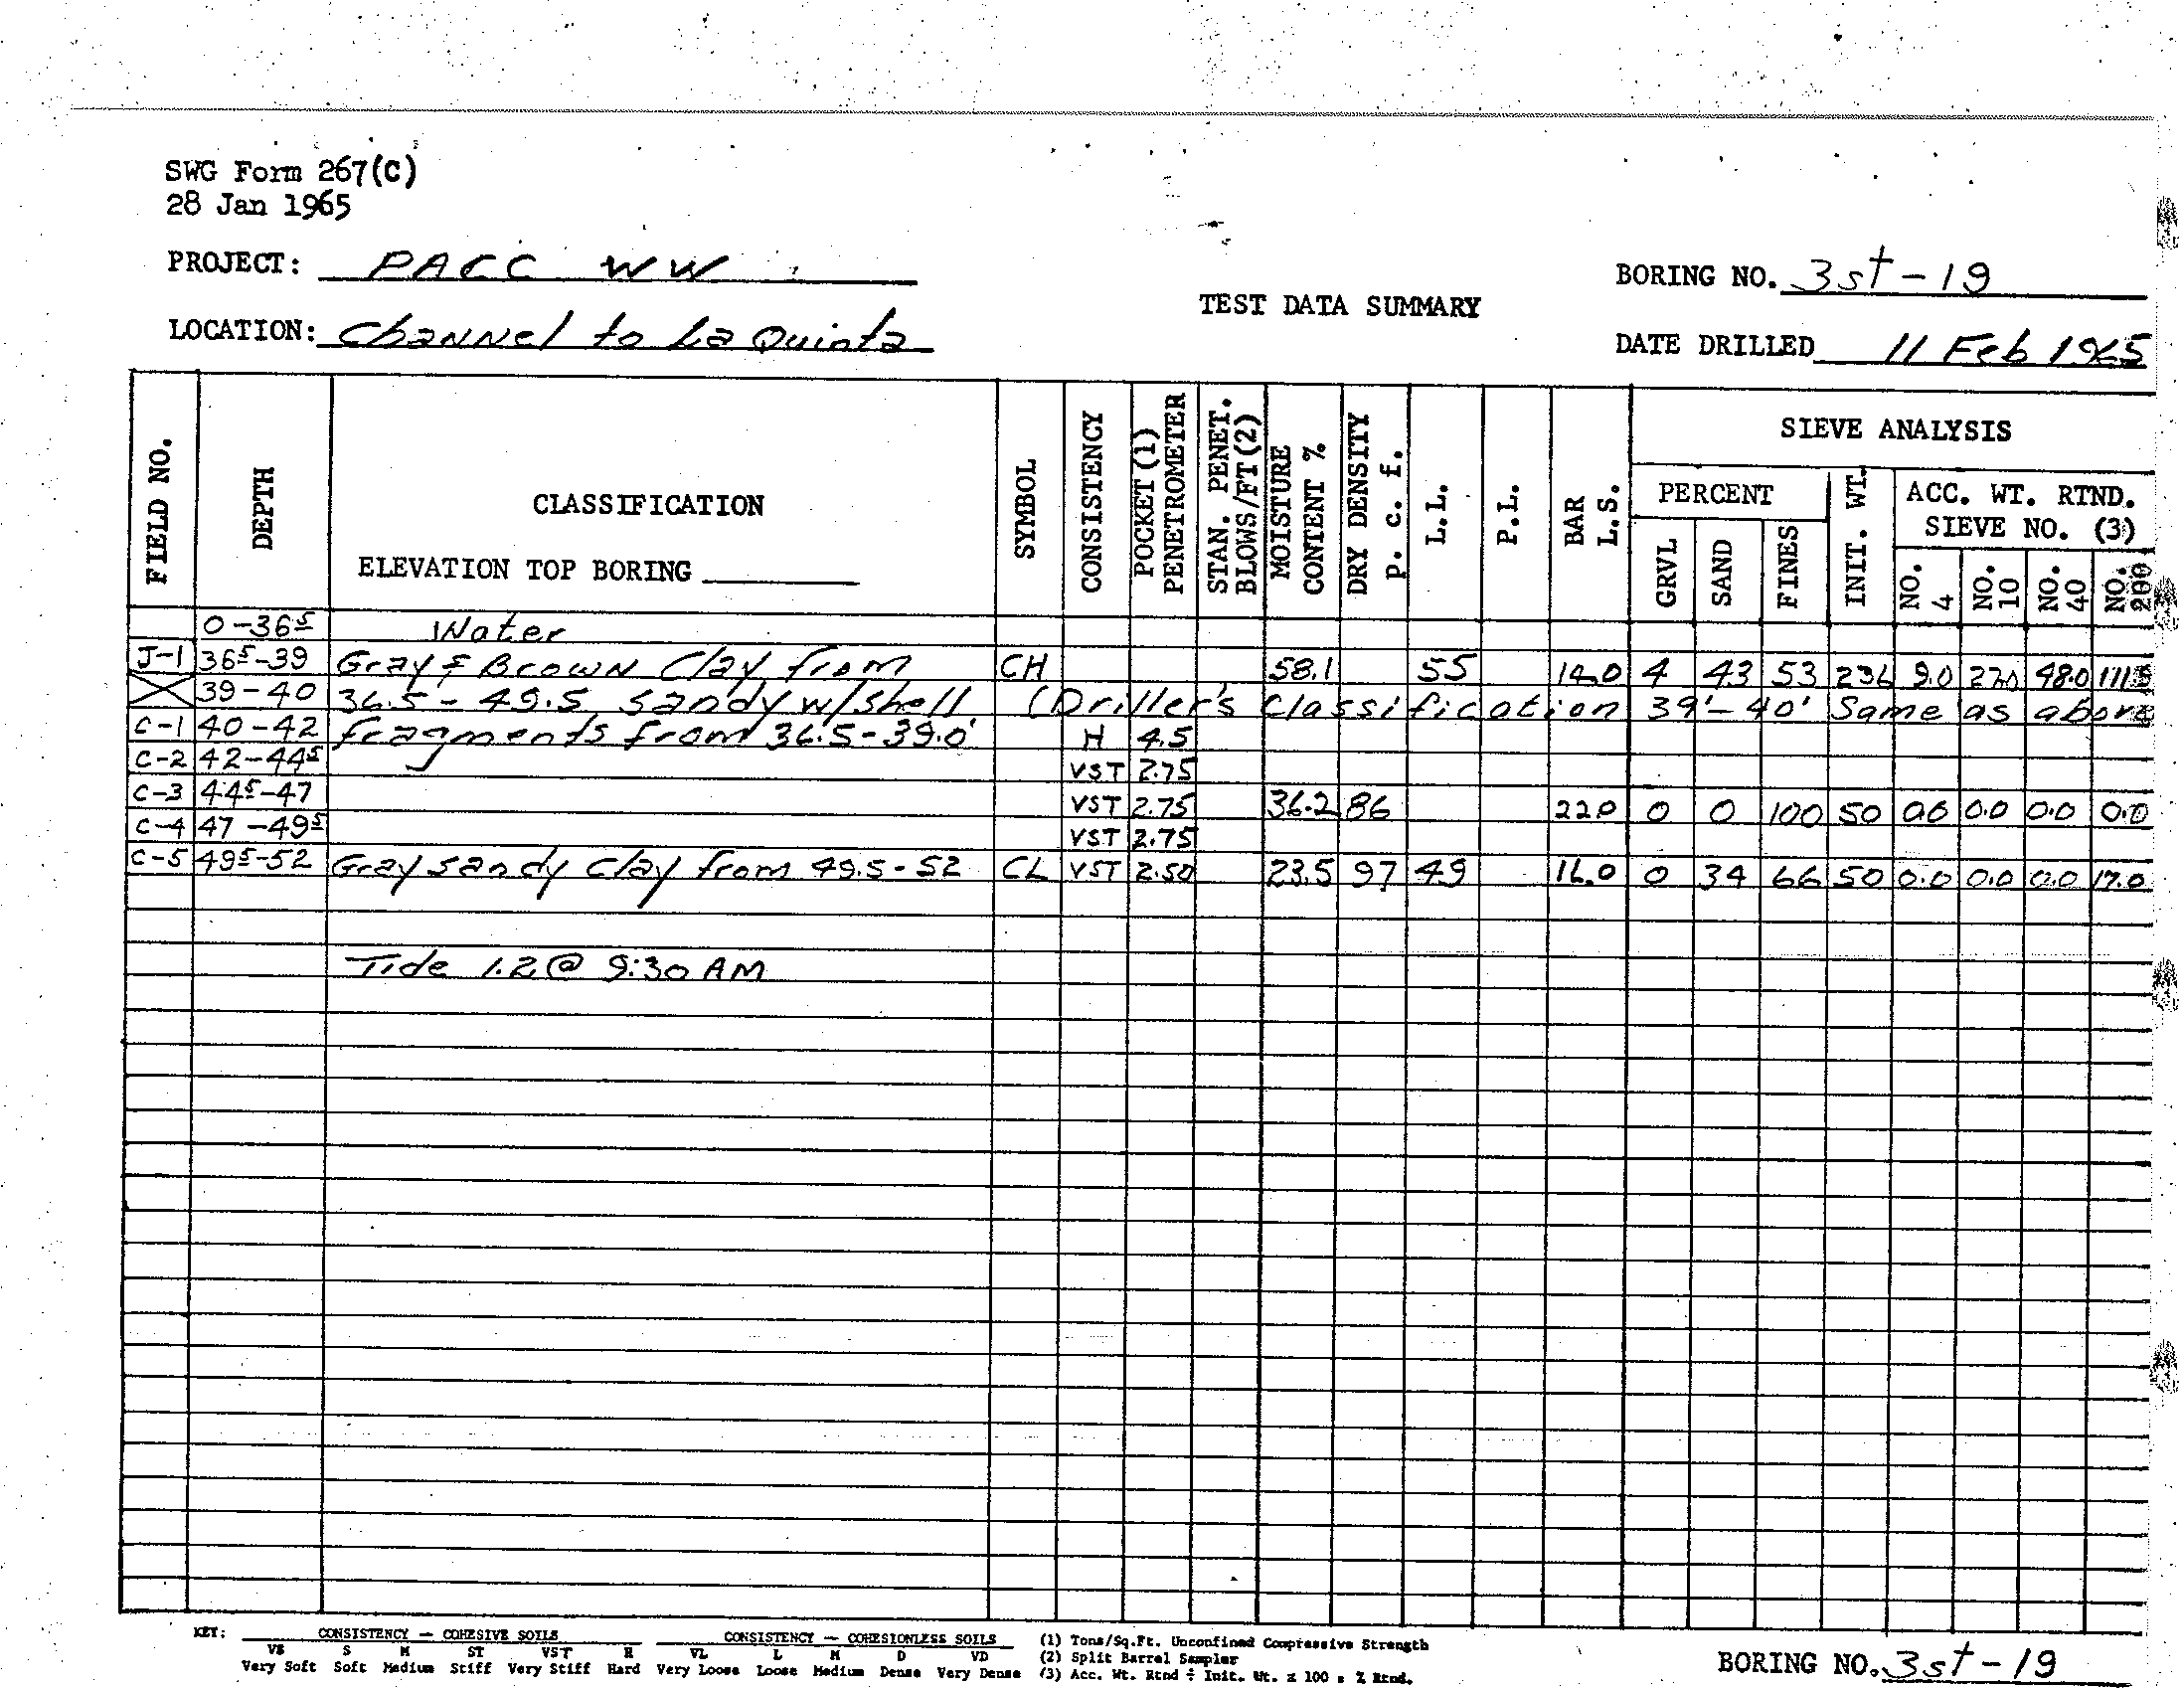 SWG Form 267(C)
28 Jan 1965
PROJECT: PACC WW
BORING NO. 3st-19
TEST DATA SUMMARY
LOCATION: Channel to La Quinta
DATE DRILLED 11 Feb 1965
FIELD NO. DEPTH CLASSIFICATION SYMBOL CONSISTENCY POCKET (1) PENETROMETER STAN. PENET. BLOWS/FT(2) MOISTURE CONTENT % DRY DENSITY p. c. f. L.L. P.L. BAR L.S. SIEVE ANALYSIS
PERCENT INIT. WT. ACC. WT. RTND. SIEVE NO. (3)
ELEVATION TOP BORING
GRVL SAND FINES NO. 4 NO. 10 NO. 40 NO. 200
0-36⁵ Water
J-1 36⁵-39 Gray & Brown Clay from CH 58.1 55 14.0 4 43 53 236 9.0 27.0 48.0 111.5
39-40 36.5-49.5, sandy w/shell (Driller's Classification 39'-40' Same as above
C-1 40-42 fragments from 36.5-39.0' H 4.5
C-2 42-44⁵ VST 2.75
C-3 44⁵-47 VST 2.75 36.2 86 22.0 0 0 100 50 0.0 0.0 0.0 0.0
C-4 47-49⁵ VST 2.75
C-5 49⁵-52 Gray sandy Clay from 49.5-52 CL VST 2.50 23.5 97 49 16.0 0 34 66 50 0.0 0.0 0.0 17.0
Tide 1.2 @ 9:30 AM
KEY: CONSISTENCY - COHESIVE SOILS CONSISTENCY - COHESIONLESS SOILS (1) Tons/Sq.Ft. Unconfined Compressive Strength
VS S M ST VST H VL L M D VD (2) Split Barrel Sampler
Very Soft Soft Medium Stiff Very Stiff Hard Very Loose Loose Medium Dense Very Dense (3) Acc. Wt. Rtnd ÷ Init. Wt. x 100 = % Rtnd.
BORING NO. 3st-19